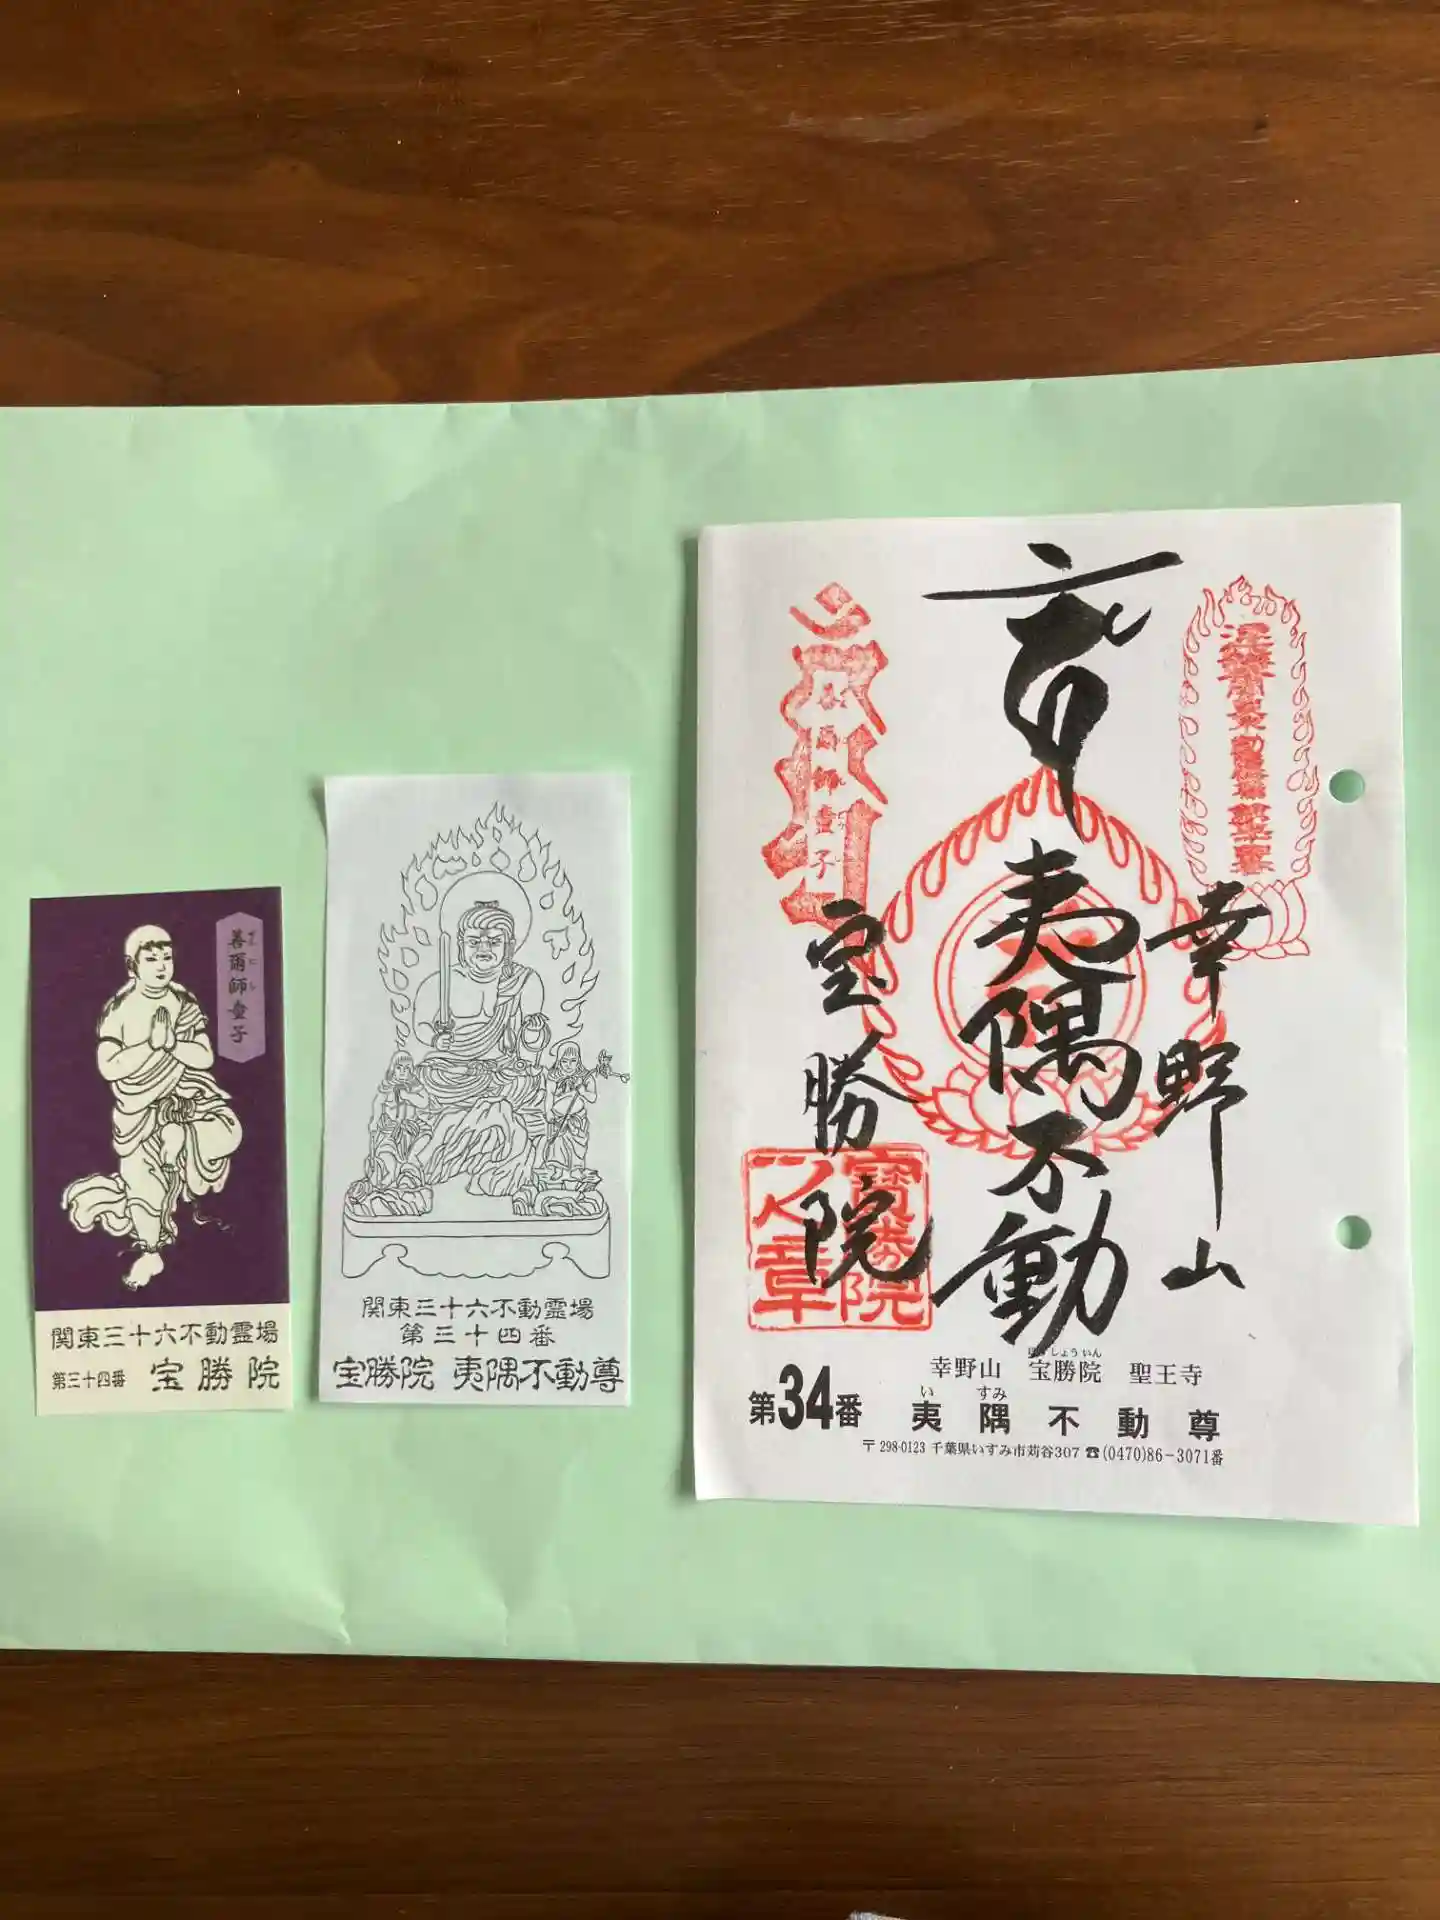 善爾師童子
ぜにし
関東三十六不動霊場
第三十四番 宝勝院
関東三十六不動霊場
第三十四番
宝勝院 夷隅不動尊
幸野山
夷隅不動
宝勝院
善爾師童子
寶勝院
之章
幸野山 宝勝院 聖王寺
ほうしょういん
第34番 夷隅不動尊
い すみ
〒298-0123 千葉県いすみ市苅谷307 ☎(0470)86-3071番